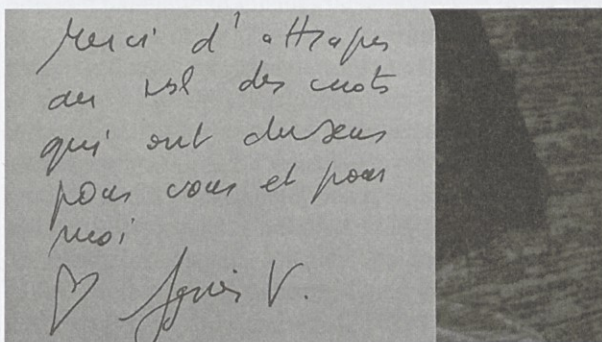 Merci d'attraper
au vol des mots
qui ont du sens
pour vous et pour
moi
♡ Agnès V.